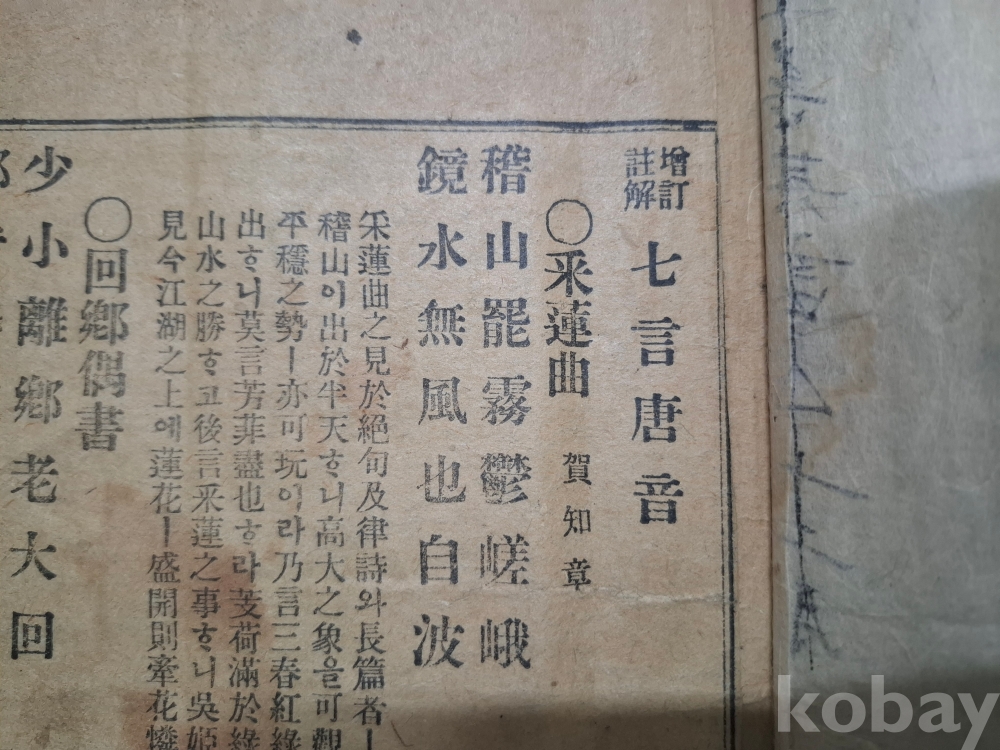 增訂
註解
七言唐音
○釆蓮曲 賀知章
稽山罷霧鬱嵯峨
鏡水無風也自波
釆蓮曲之見於絕句及律詩와長篇者ㅣ
稽山이出於半天ᄒᆞ니高大之象을可觀
平穩之勢ㅣ亦可玩이라乃言三春紅綠
出ᄒᆞ니莫言芳菲盡也ᄒᆞ라芰荷滿於綠
山水之勝ᄒᆞ고後言釆蓮之事ᄒᆞ니吳姬
見今江湖之上에蓮花ㅣ盛開則牽花
○回鄕偶書
少小離鄕老大回
kobay